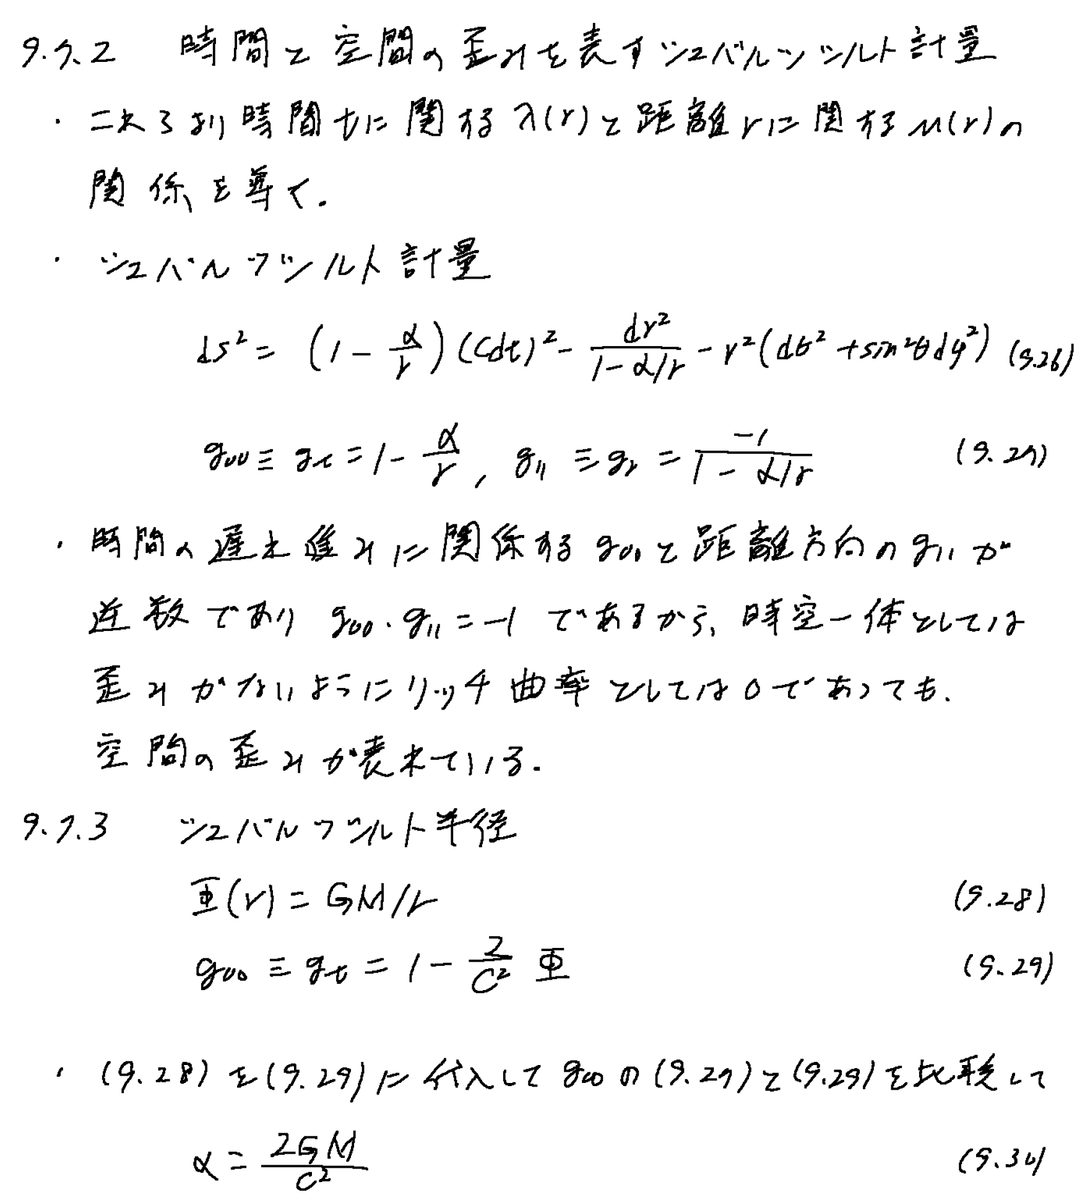 9.7.2 時間と空間の歪みを表すシュバルツシルト計量
・これより時間tに関するλ(r)と距離rに関するμ(r)の
関係を導く.
・シュバルツシルト計量
ds² = (1 - α/r)(cdt)² - dr²/(1 - α/r) - r²(dθ² + sin²θdφ²) (9.26)
g₀₀ ≡ gₜ = 1 - α/r, g₁₁ ≡ gᵣ = -1/(1 - α/r) (9.27)
・時間の遅れ進みに関係するg₀₀と距離方向のg₁₁が
逆数でありg₀₀・g₁₁ = -1であるから、時空一体としては
歪みがないようにリッチ曲率としては0であっても、
空間の歪みが表れている.
9.7.3 シュバルツシルト半径
Φ(r) = GM/r (9.28)
g₀₀ ≡ gₜ = 1 - 2/c² Φ (9.29)
・(9.28)を(9.29)に代入してg₀₀の(9.27)と(9.29)を比較して
α = 2GM/c² (9.30)